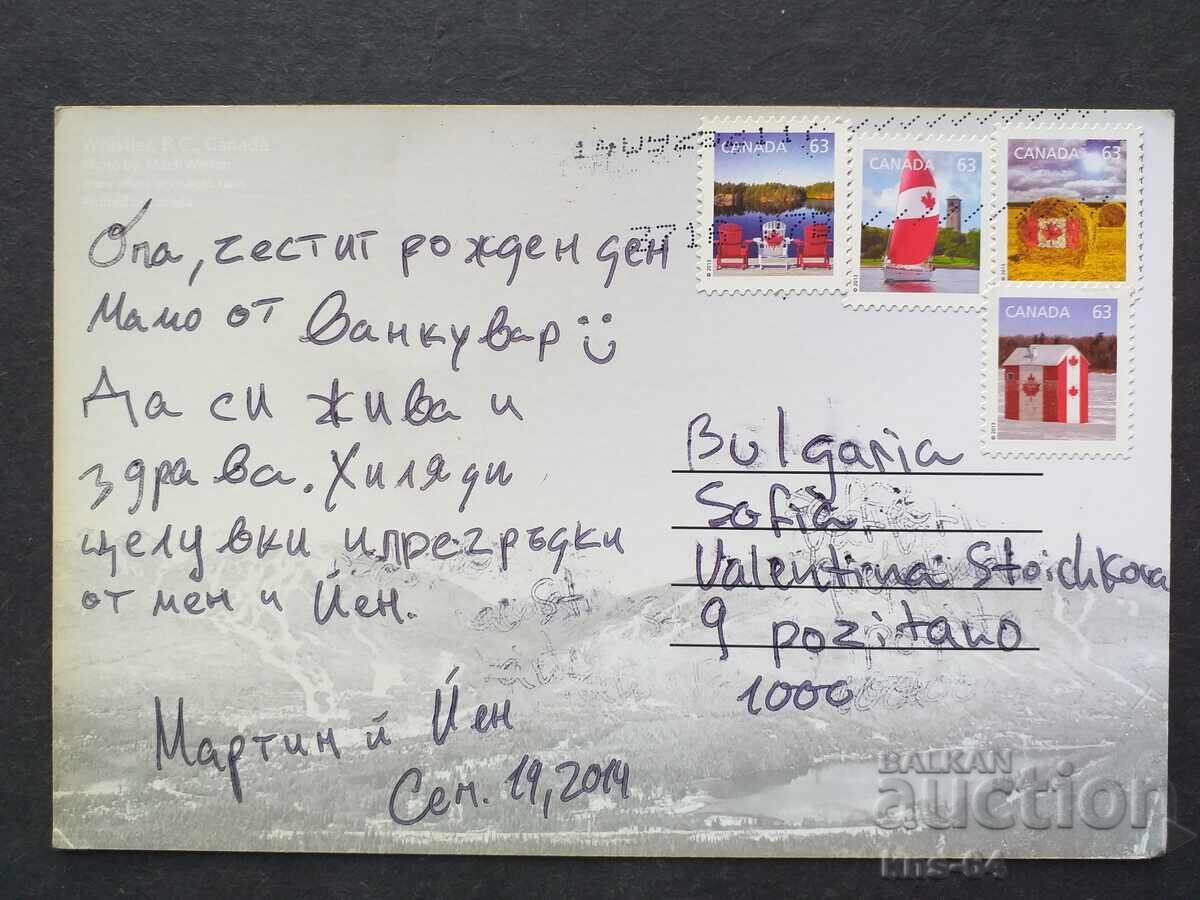 Whistler, B.C., Canada
CANADA 63
CANADA 63
CANADA 63
CANADA 63
© 2013
© 2013
© 2013
© 2013
Опа, честит рожден ден
Мамо от Ванкувар
Да си жива и
здрава. Хиляди
целувки и прегръдки
от мен и Йен.
Мартин й Йен
Сеп. 19, 2014
Bulgaria
Sofia
Valentina Stoichkova
9 pozitano
1000
BALKAN
auction
kns-64